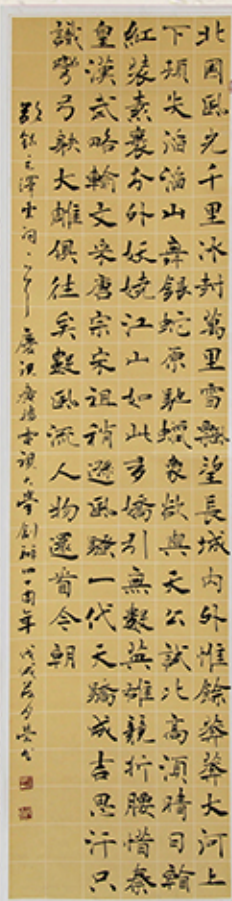 北國風光千里冰封萬里雪飄望長城內外惟餘莽莽大河上
下頓失滔滔山舞銀蛇原馳蠟象欲與天公試比高須晴日
紅裝素裹分外妖嬈江山如此多嬌引無數英雄競折腰惜秦
皇漢武略輸文采唐宗宋祖稍遜風騷一代天驕成吉思汗只
識彎弓射大雕俱往矣數風流人物還看今朝
錄毛澤東詞 慶祝廣播電視大學創辦四十周年 戊戌